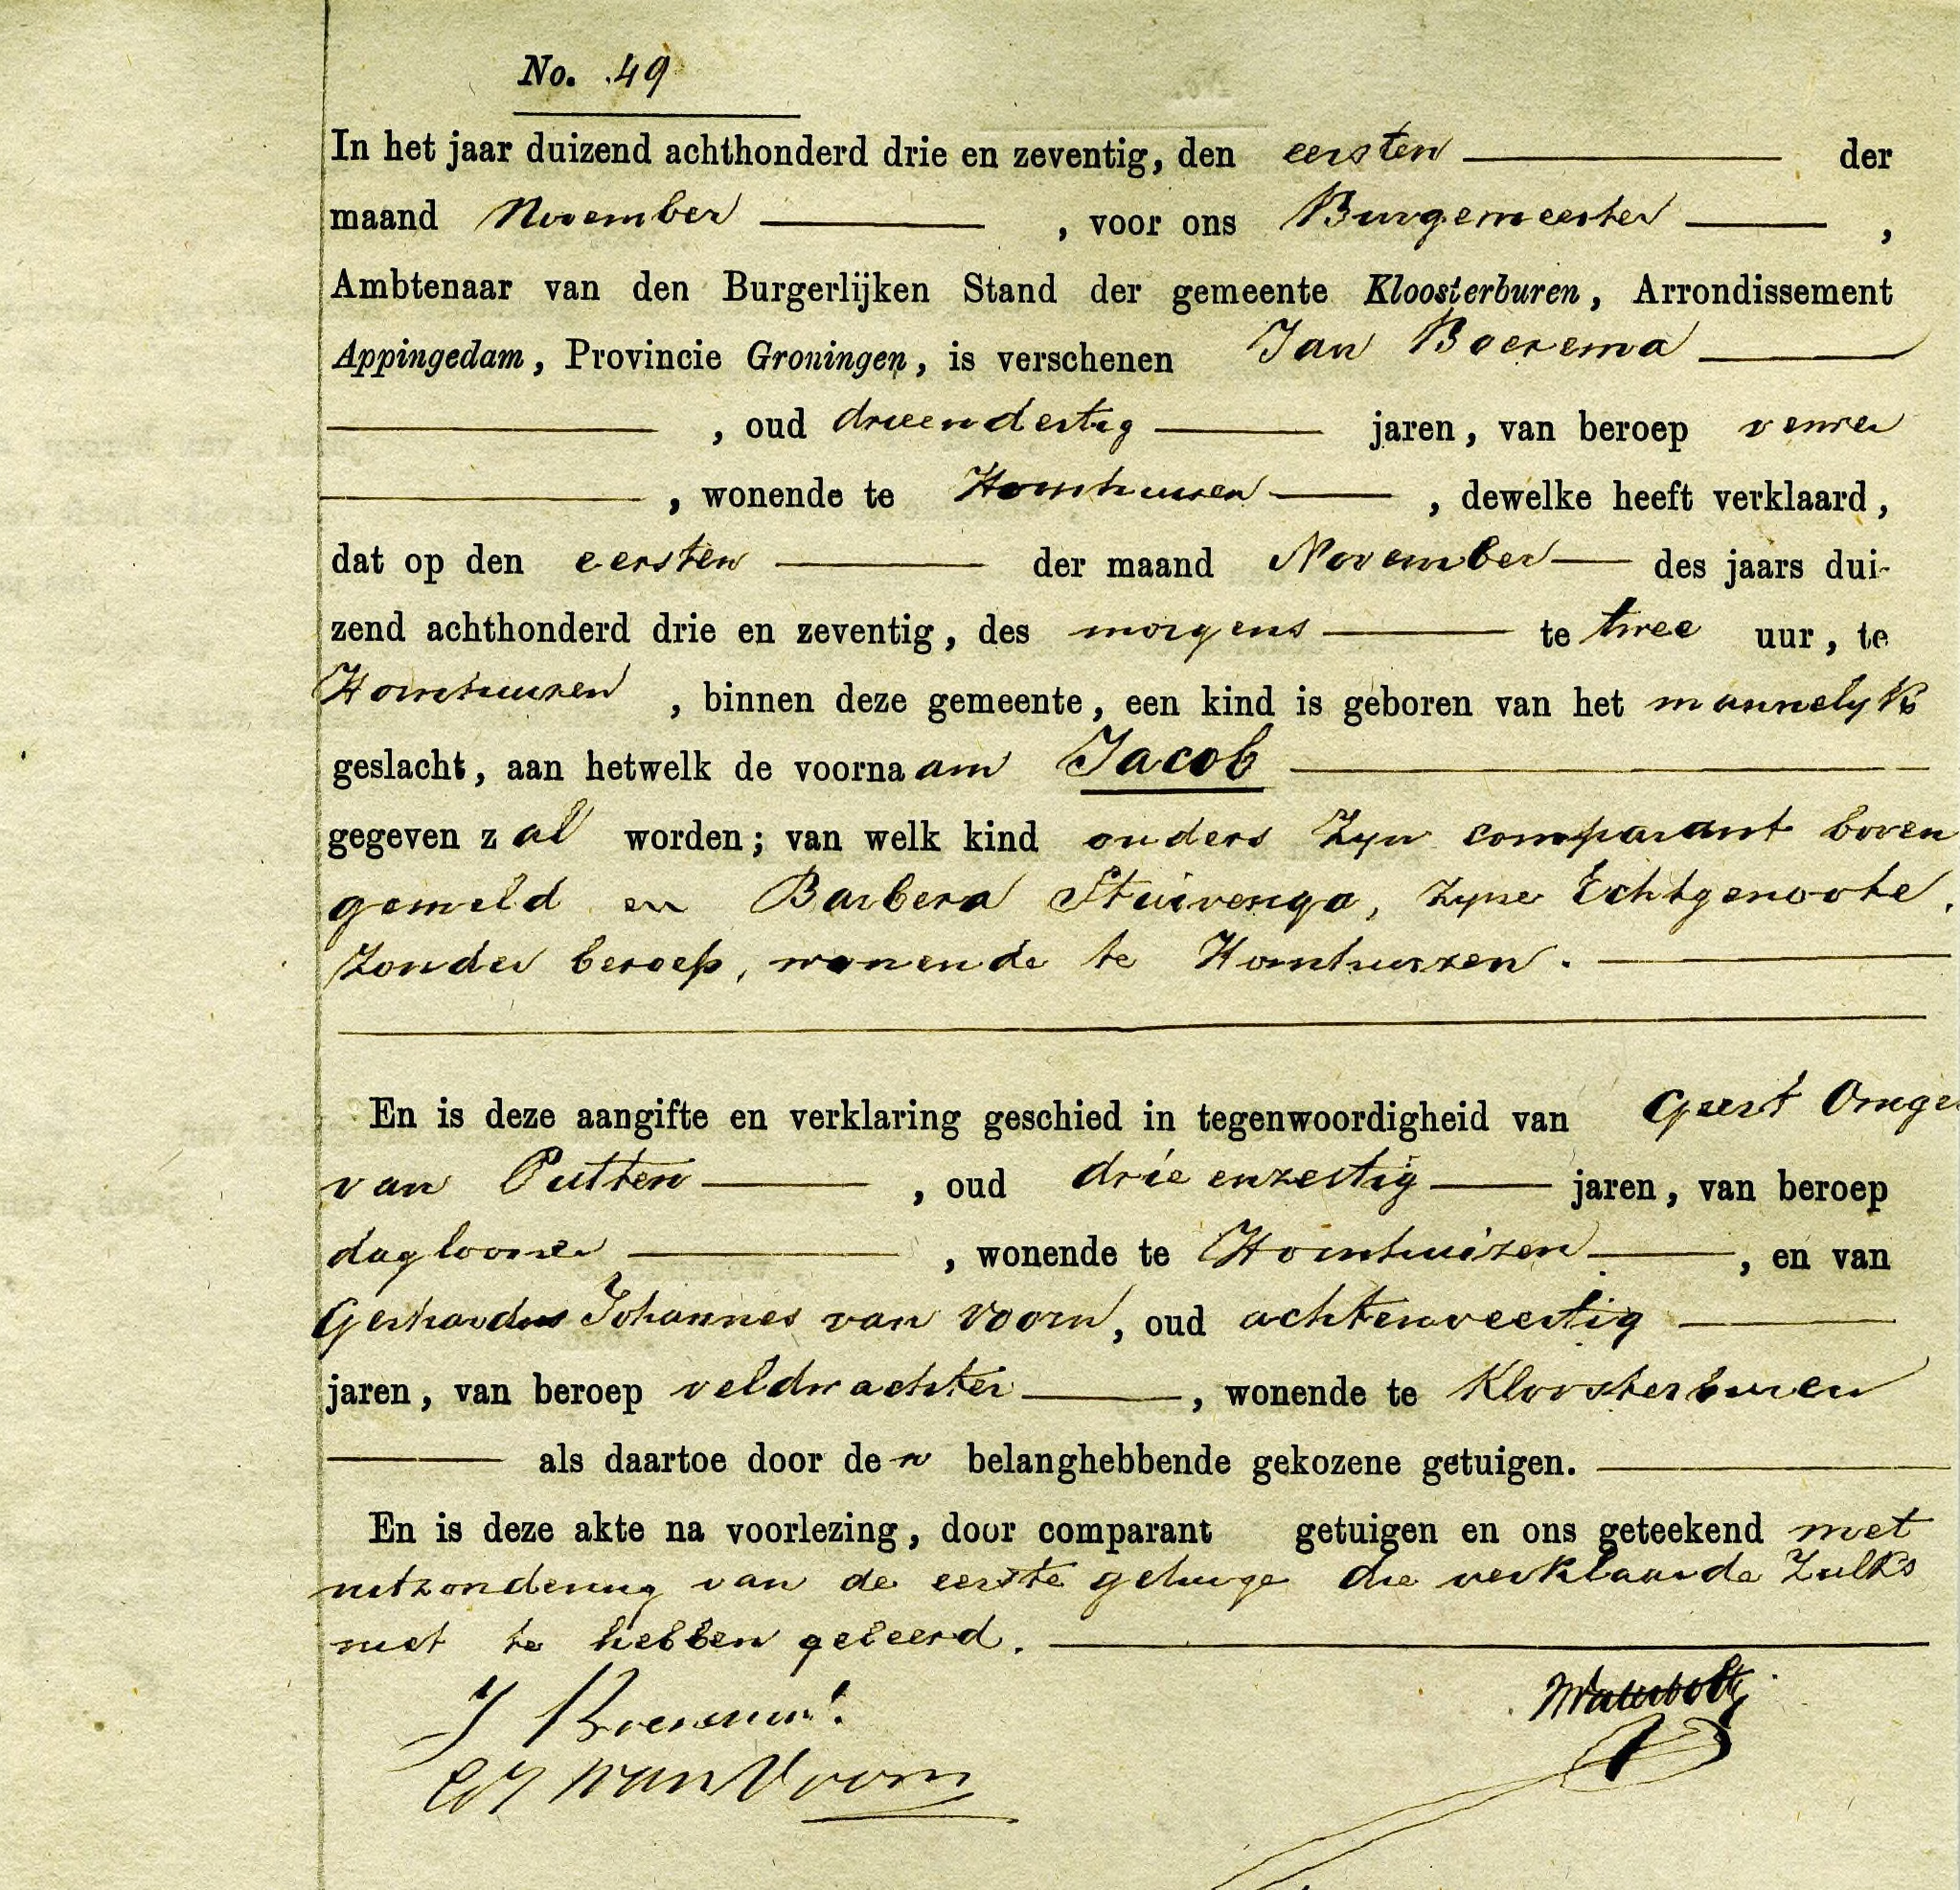 No. 49
In het jaar duizend achthonderd drie en zeventig, den eersten der
maand November , voor ons Burgemeester ,
Ambtenaar van den Burgerlijken Stand der gemeente Kloosterburen, Arrondissement
Appingedam, Provincie Groningen, is verschenen Jan Boerema
, oud drieendertig jaren, van beroep verwer
, wonende te Hornhuizen , dewelke heeft verklaard,
dat op den eersten der maand November des jaars dui-
zend achthonderd drie en zeventig, des morgens te twee uur, te
Hornhuizen , binnen deze gemeente, een kind is geboren van het mannelyk
geslacht, aan hetwelk de voornaam Jacob
gegeven zal worden; van welk kind ouders zyn comparant boven
gemeld en Barbera Stuivenga, zyne Echtgenoote,
zonder beroep, wonende te Hornhuizen.
En is deze aangifte en verklaring geschied in tegenwoordigheid van Geert
van Putten , oud drieenzestig jaren, van beroep
daglooner , wonende te Hornhuizen , en van
Gerhardus Johannes van Voorn, oud achtenveertig
jaren, van beroep veldwachter , wonende te Kloosterburen
als daartoe door den belanghebbende gekozene getuigen.
En is deze akte na voorlezing, door comparant getuigen en ons geteekend met
uitzondering van de eerste getuige die verklaarde zulks
niet te hebben geleerd.
J Boerema
GJ van Voorn